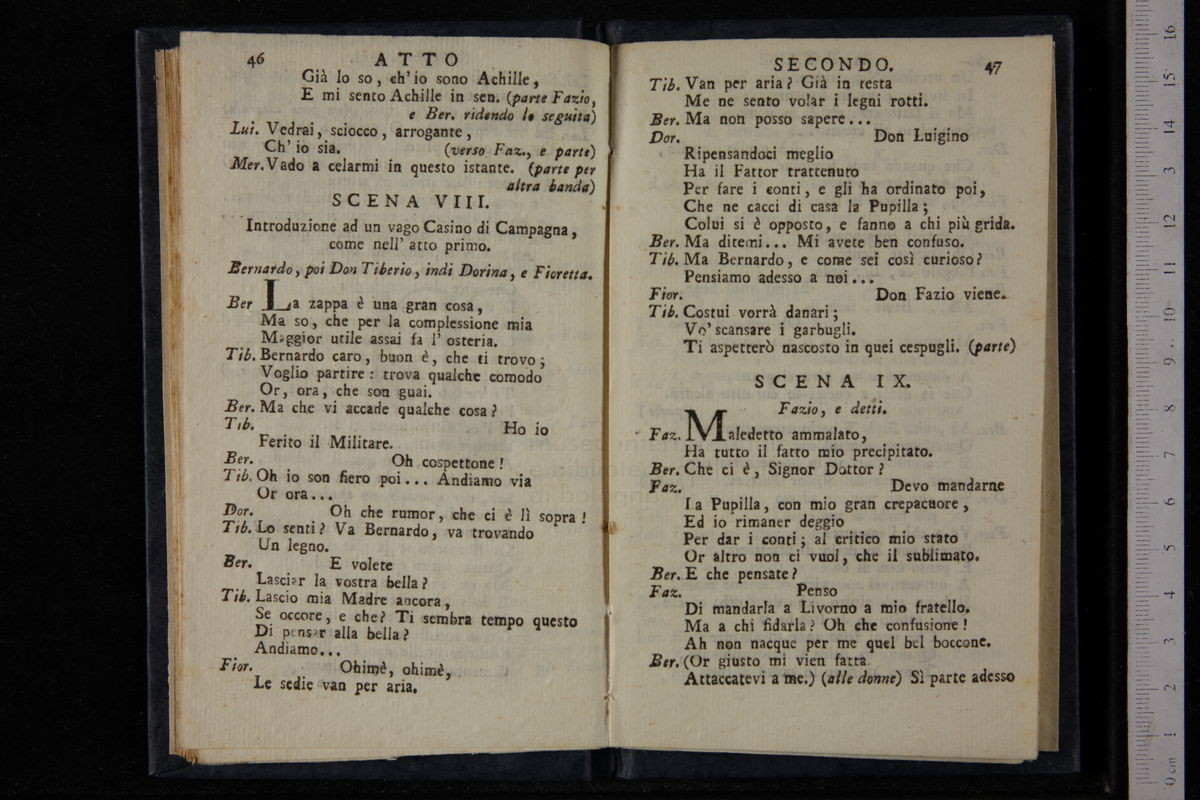 46 ATTO
Già lo so, ch'io sono Achille,
E mi sento Achille in sen. (parte Fazio,
e Ber. ridendo lo seguita)
Lui. Vedrai, sciocco, arrogante,
Ch'io sia. (verso Faz., e parte)
Mer. Vado a celarmi in questo istante. (parte per
altra banda)
SCENA VIII.
Introduzione ad un vago Casino di Campagna,
come nell' atto primo.
Bernardo, poi Don Tiberio, indi Dorina, e Fioretta.
Ber La zappa è una gran cosa,
Ma so, che per la complessione mia
Maggior utile assai fa l'osteria.
Tib. Bernardo caro, buon è, che ti trovo;
Voglio partire: trova qualche comodo
Or, ora, che son guai.
Ber. Ma che vi accade qualche cosa?
Tib. Ho io
Ferito il Militare.
Ber. Oh cospettone!
Tib. Oh io son fiero poi... Andiamo via
Or ora...
Dor. Oh che rumor, che ci è lì sopra!
Tib. Lo senti? Va Bernardo, va trovando
Un legno.
Ber. E volete
Lasciar la vostra bella?
Tib. Lascio mia Madre ancora,
Se occore, e che? Ti sembra tempo questo
Di pensar alla bella?
Andiamo...
Fior. Ohimè, ohimè,
Le sedie van per aria.
SECONDO. 47
Tib. Van per aria? Già in testa
Me ne sento volar i legni rotti.
Ber. Ma non posso sapere...
Dor. Don Luigino
Ripensandoci meglio
Ha il Fattor trattenuto
Per fare i conti, e gli ha ordinato poi,
Che ne cacci di casa la Pupilla;
Colui si è opposto, e fanno a chi più grida.
Ber. Ma ditemi... Mi avete ben confuso.
Tib. Ma Bernardo, e come sei così curioso?
Pensiamo adesso a noi...
Fior. Don Fazio viene.
Tib. Costui vorrà danari;
Vo' scansare i garbugli.
Ti aspetterò nascosto in quei cespugli. (parte)
SCENA IX.
Fazio, e detti.
Faz. Maledetto ammalato,
Ha tutto il fatto mio precipitato.
Ber. Che ci è, Signor Dottor?
Faz. Devo mandarne
La Pupilla, con mio gran crepacuore,
Ed io rimaner deggio
Per dar i conti; al critico mio stato
Or altro non ci vuol, che il sublimato.
Ber. E che pensate?
Faz. Penso
Di mandarla a Livorno a mio fratello.
Ma a chi fidarla? Oh che confusione!
Ah non nacque per me quel bel boccone.
Ber. (Or giusto mi vien fatta
Attaccatevi a me.) (alle donne) Sì parte adesso
0 cm 1 2 3 4 5 6 7 8 9 10 11 12 13 14 15 16